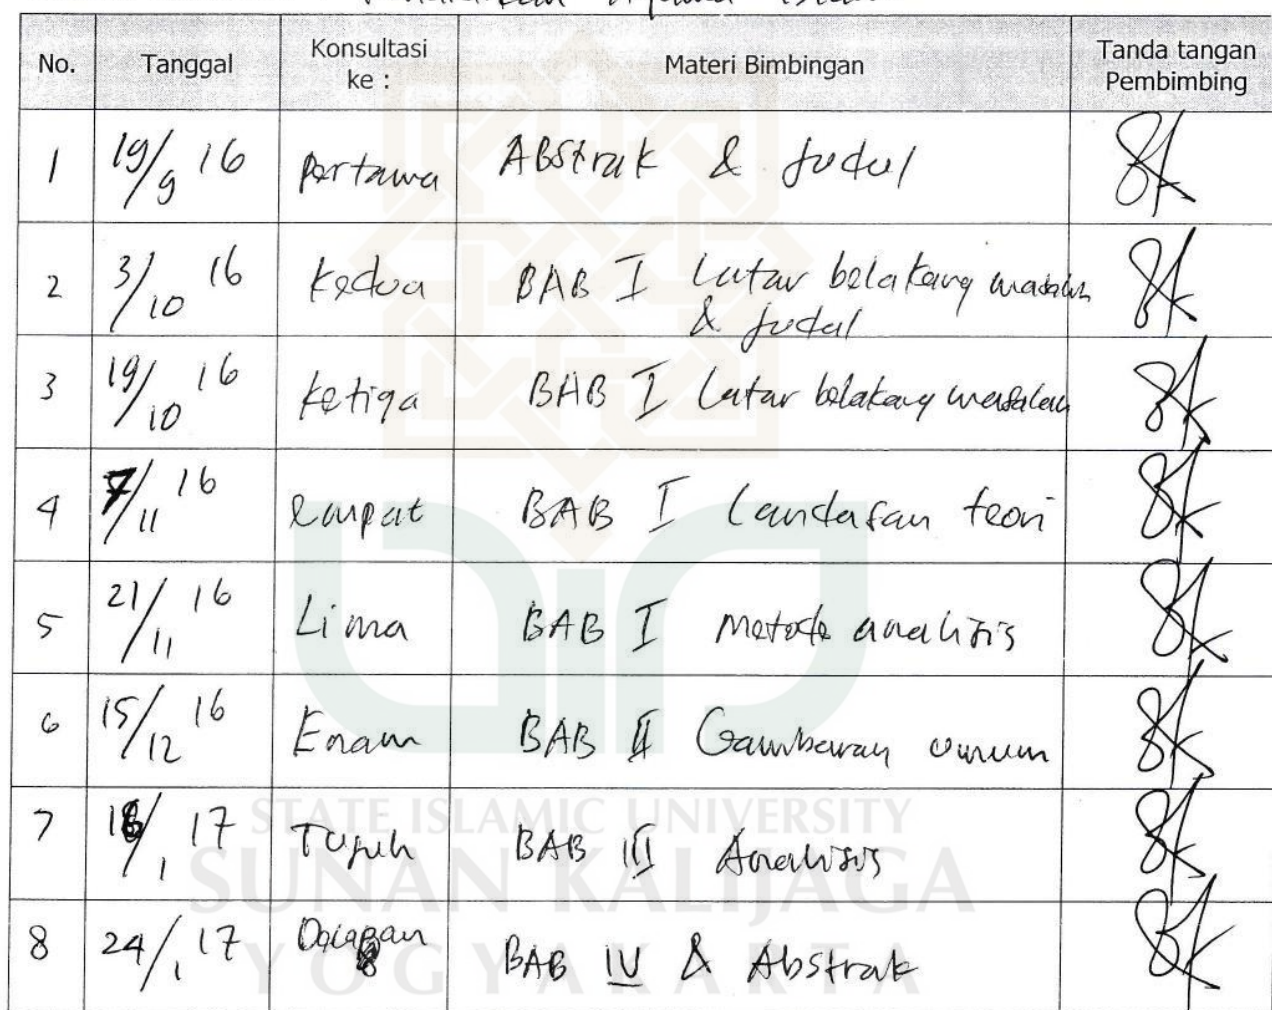 No. Tanggal Konsultasi ke : Materi Bimbingan Tanda tangan Pembimbing
1 19/9 16 pertama ABstrak & Judul
2 3/10 16 kedua BAB I Latar belakang masalah
& Judul
3 19/10 16 ketiga BAB I Latar belakang masalah
4 7/11 16 empat BAB I Landasan teori
5 21/11 16 Lima BAB I metode analisis
6 15/12 16 Enam BAB II Gambaran umum
7 18/1 17 Tujuh BAB III Analisis
8 24/1 17 Delapan BAB IV & Abstrak
STATE ISLAMIC UNIVERSITY
SUNAN KALIJAGA
YOGYAKARTA